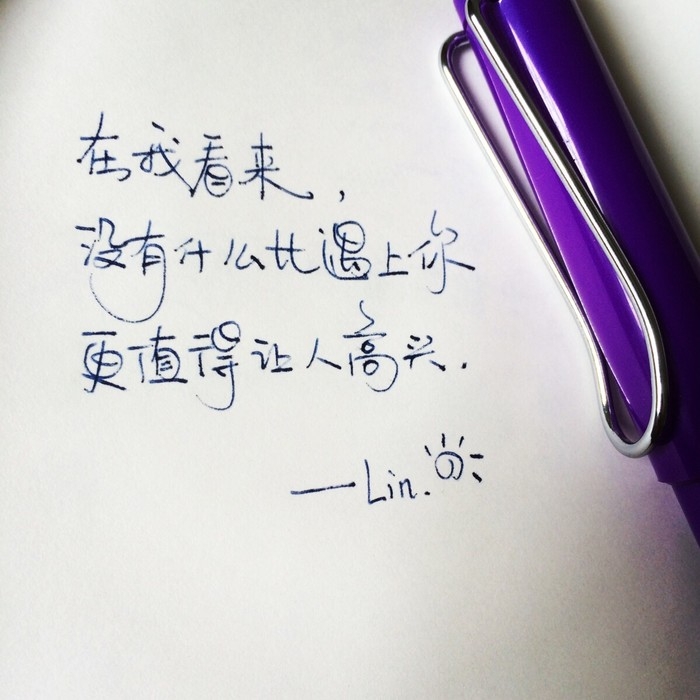 在我看来，
没有什么比遇上你
更值得让人高兴.
—Lin.